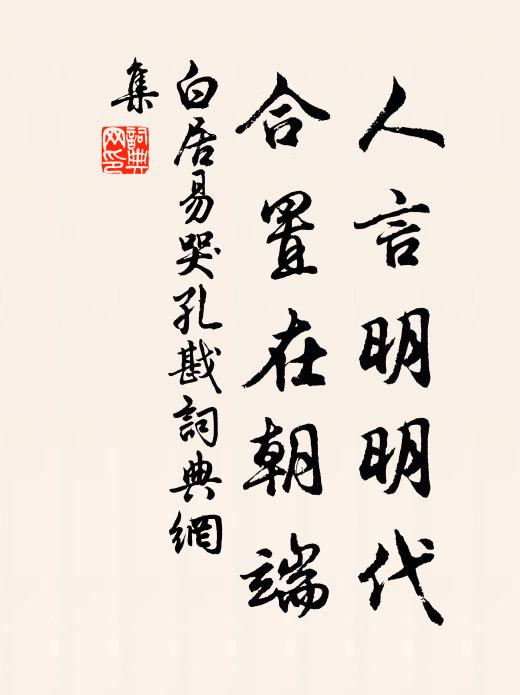 人言明明代
合置在朝端
白居易哭孔戡詞典網
集
詞典網印